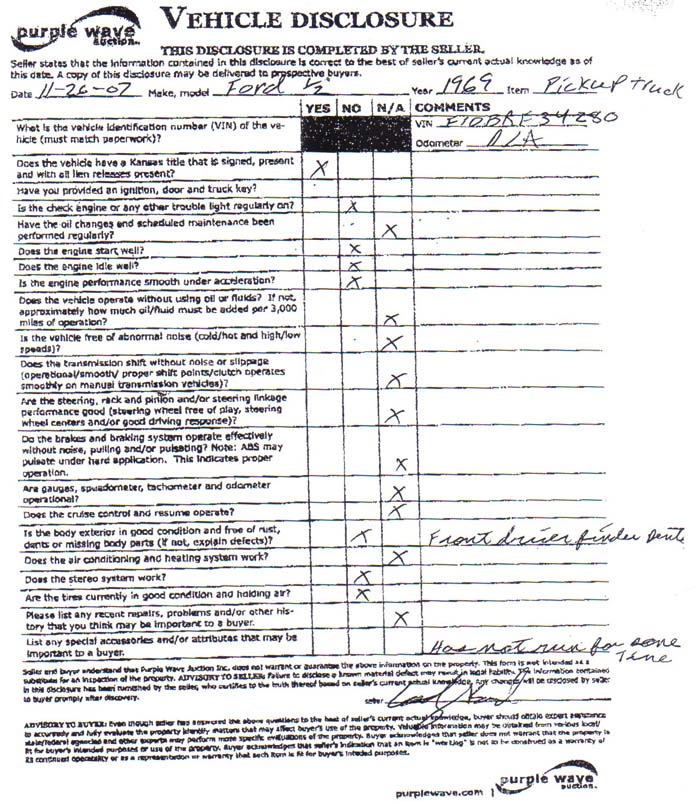 purple wave
auction.
VEHICLE DISCLOSURE
THIS DISCLOSURE IS COMPLETED BY THE SELLER.
Seller states that the information contained in this disclosure is correct to the best of seller's current actual knowledge as of
this date. A copy of this disclosure may be delivered to prospective buyers.
Date 11-26-07 Make, model Ford 1/2 Year 1969 Item Pickup truck
YES NO N/A COMMENTS
What is the vehicle identification number (VIN) of the ve-
hicle (must match paperwork)?
VIN F10BRE34280
Odometer N/A
Does the vehicle have a Kansas title that is signed, present
and with all lien releases present? X
Have you provided an ignition, door and truck key?
Is the check engine or any other trouble light regularly on? X
Have the oil changes and scheduled maintenance been
performed regularly? X
Does the engine start well? X
Does the engine idle well? X
Is the engine performance smooth under acceleration? X
Does the vehicle operate without using oil or fluids? If not,
approximately how much oil/fluid must be added per 3,000
miles of operation? X
Is the vehicle free of abnormal noise (cold/hot and high/low
speeds)? X
Does the transmission shift without noise or slippage
(operational/smooth/ proper shift points/clutch operates
smoothly on manual transmission vehicles)? X
Are the steering, rack and pinion and/or steering linkage
performance good (steering wheel free of play, steering
wheel centers and/or good driving response)? X
Do the brakes and braking system operate effectively
without noise, pulling and/or pulsating? Note: ABS may
pulsate under hard application. This indicates proper
operation. X
Are gauges, speedometer, tachometer and odometer
operational? X
Does the cruise control and resume operate? X
Is the body exterior in good condition and free of rust,
dents or missing body parts (if not, explain defects)? X Front driver finder dents
Does the air conditioning and heating system work? X
Does the stereo system work? X
Are the tires currently in good condition and holding air? X
Please list any recent repairs, problems and/or other his-
tory that you think may be important to a buyer. X
List any special accessories and/or attributes that may be
important to a buyer. Has not run for some
Time
Seller and buyer understand that Purple Wave Auction Inc. does not warrant or guarantee the above information on the property. This form is not intended as a
substitute for an inspection of the property. ADVISORY TO SELLER: Failure to disclose a known material defect may result in legal liability. The information contained
in this disclosure has been furnished by the seller, who certifies to the truth thereof based on seller's current actual knowledge. Any changes will be disclosed by seller
to buyer promptly after discovery.
seller
ADVISORY TO BUYER: Even though seller has answered the above questions to the best of seller's current actual knowledge, buyer should obtain expert assistance
to accurately and fully evaluate the property identify matters that may affect buyer's use of the property. Valuable information may be obtained from various local/
state/federal agencies and other experts may perform more specific evaluations of the property. Buyer acknowledges that seller does not warrant that the property is
fit for buyer's intended purposes or use of the property. Buyer acknowledges that seller's indication that an item is "working" is not to be construed as a warranty of
its continued operability or as a representation or warranty that such item is fit for buyer's intended purposes.
purplewave.com |
purple wave
auction.